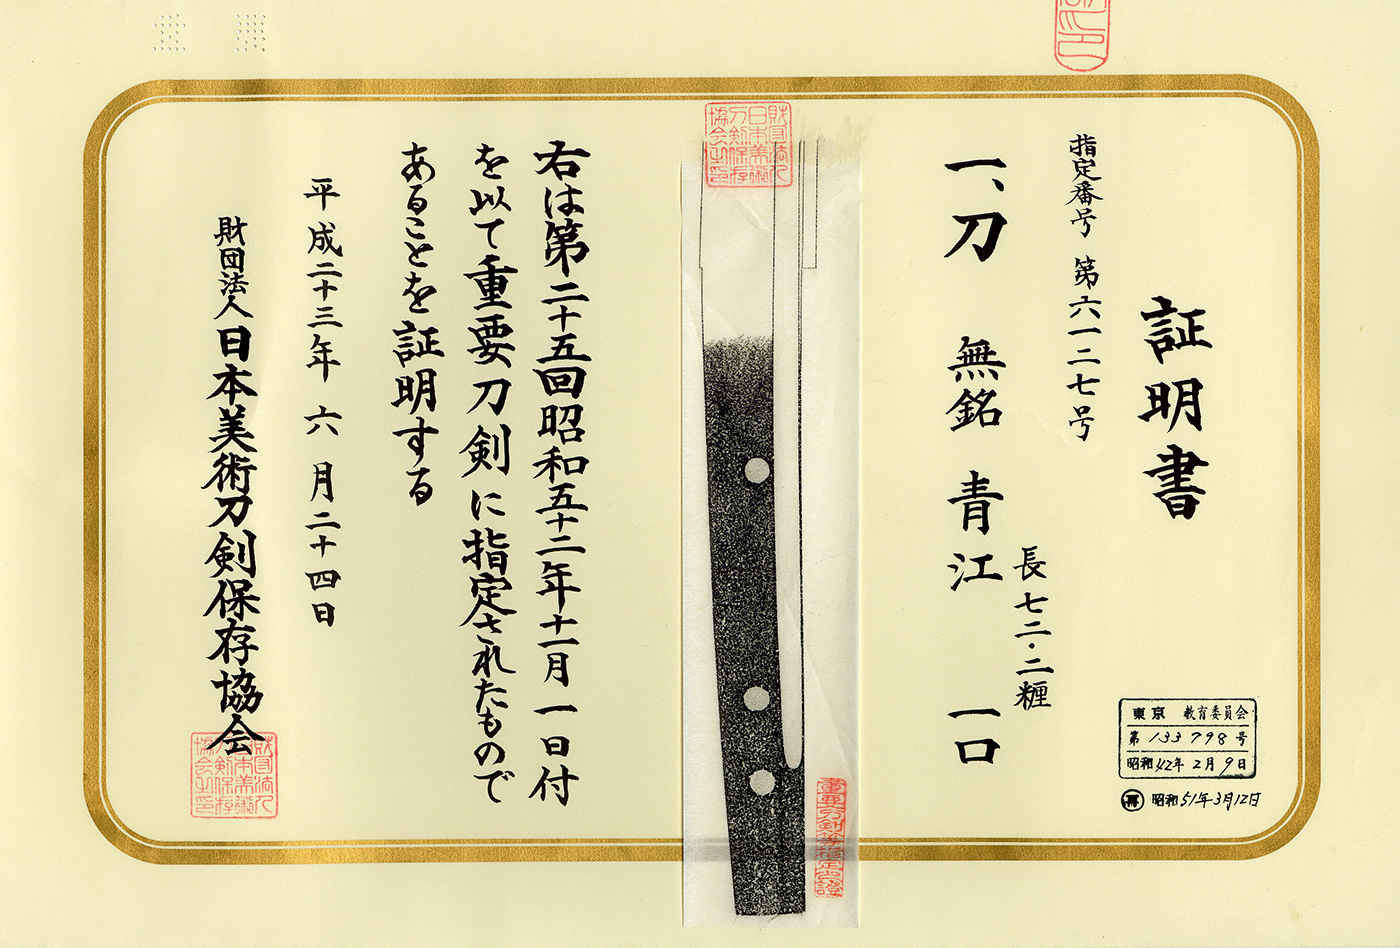 証明書
指定番号 第六一二七号
一、刀 無銘 青江 一口
長七二・二糎
東京 教育委員会
第 133798 号
昭和42年2月9日
再 昭和51年3月12日
財団法人
日本美術
刀剣保存
協会之印
重要刀剣等指定之證
右は第二十五回昭和五十二年十一月一日付
を以て重要刀剣に指定されたもので
あることを証明する
平成二十三年六月二十四日
財団法人日本美術刀剣保存協会
財団法人
日本美術
刀剣保存
協会之印